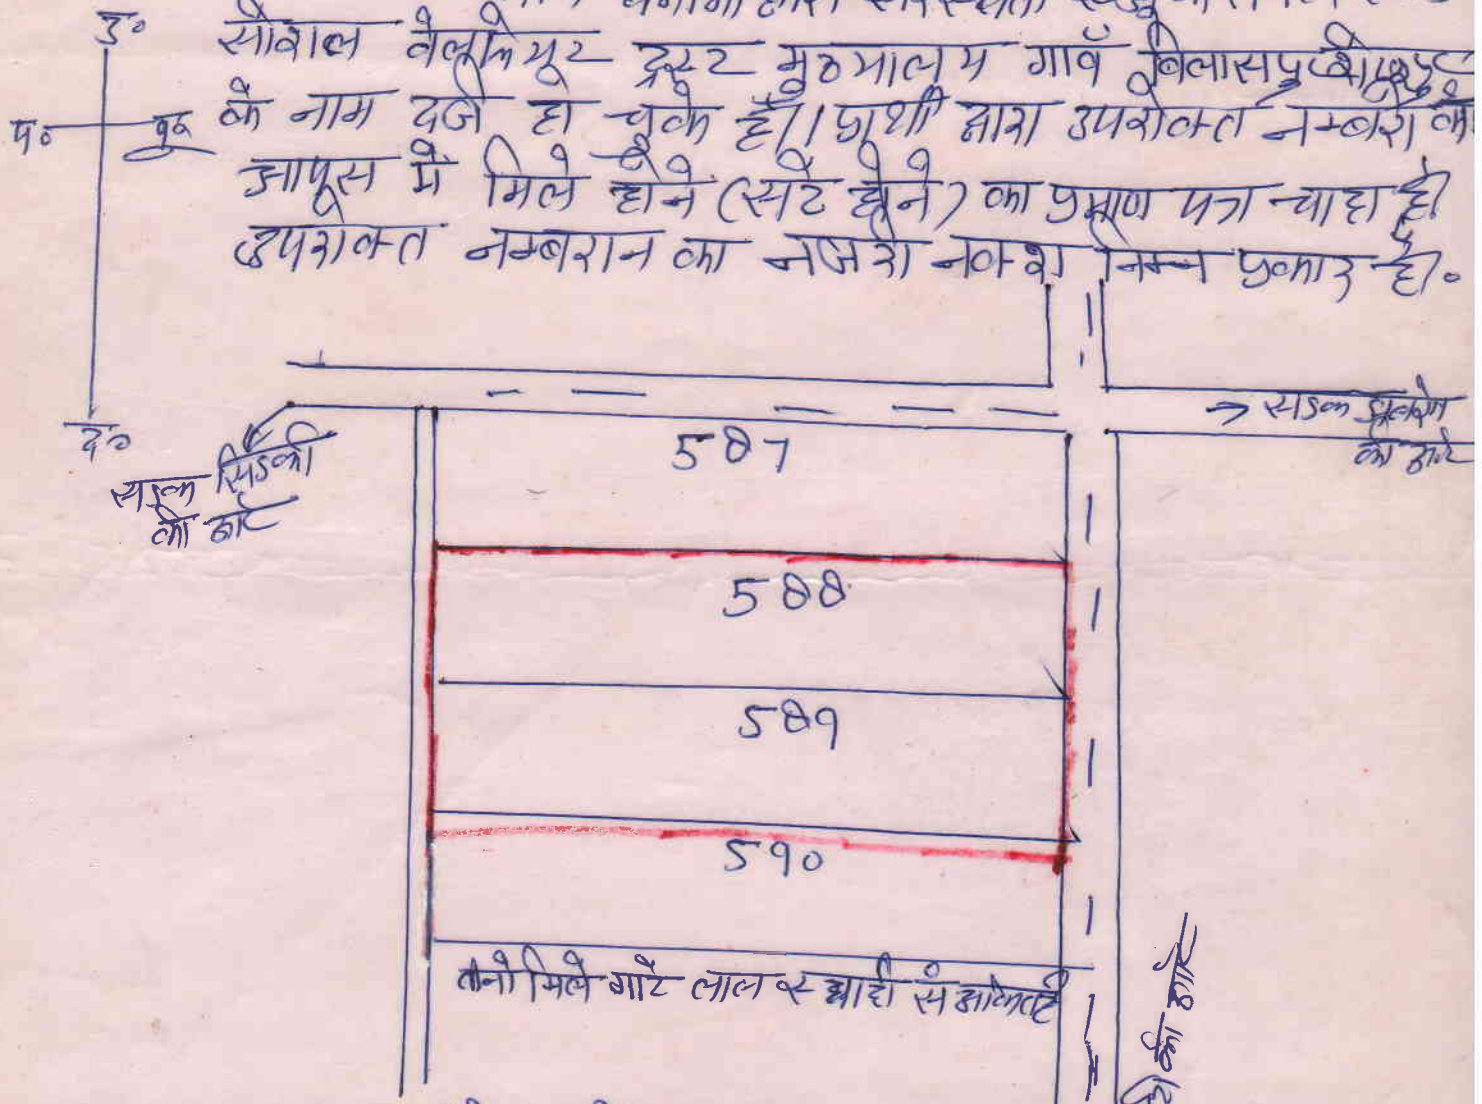 उ०
सोशल वेलफेयर ट्रस्ट मुख्यालय गावँ बिलासपुर
प० पू०
के नाम दर्ज हो चूके है।। प्राथी द्वारा उपरोक्त नम्बरो का
आपस में मिले होने (सटे होने) का प्रमाण पत्र चाहा है
उपरोक्त नम्बरान का नजरी नक्शा निम्न प्रकार है।
द०
→ सडक
को
सडक सिडकी
को
587
588
589
590
तीनो मिले गाटे लाल स्याही से अंकित है
को